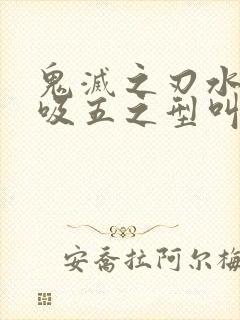 鬼滅之刃水
吸五之型叫
安喬拉阿尔梅